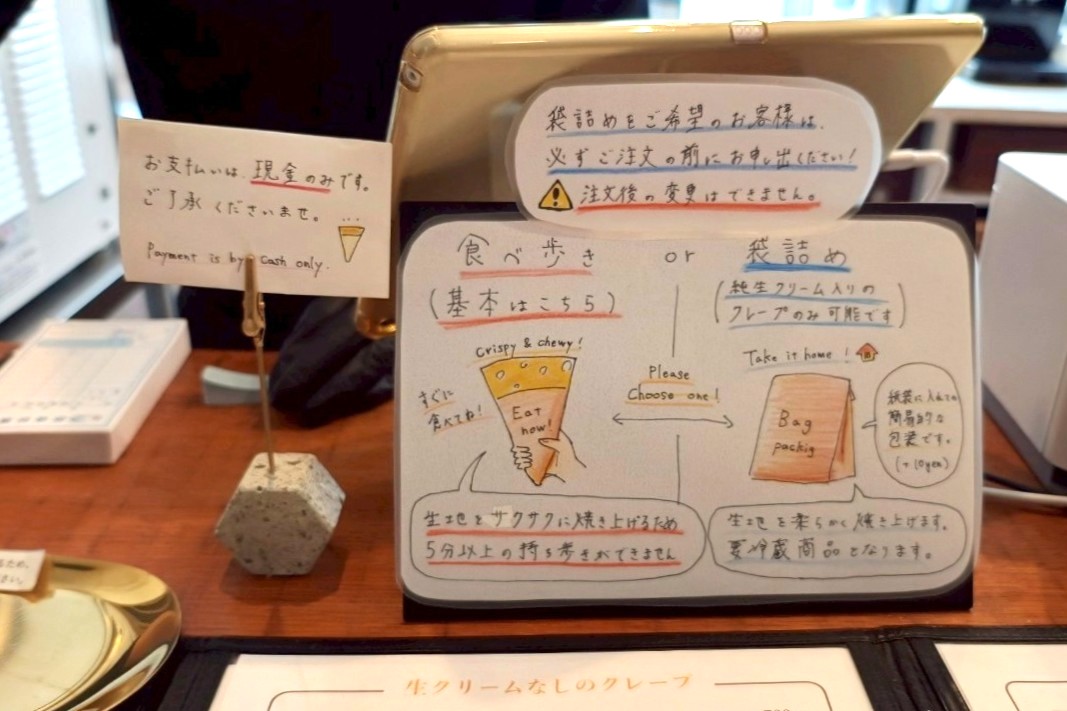 お支払いは、現金のみです。
ご了承くださいませ。
Payment is by cash only.
袋詰めをご希望のお客様は、
必ずご注文の前にお申し出ください！
注文後の変更はできません。
食べ歩き
(基本はこちら)
Crispy & chewy!
すぐに
食べてね！
Eat
now!
生地をサクサクに焼き上げるため
5分以上の持ち歩きができません
or
Please
Choose one!
袋詰め
(純生クリーム入りの
クレープのみ可能です)
Take it home!
Bag
packig
紙袋に入れての
簡易的な
包装です。
(+10yen)
生地を柔らかく焼き上げます。
要冷蔵商品となります。
るため、
さい。
生クリームなしのクレープ